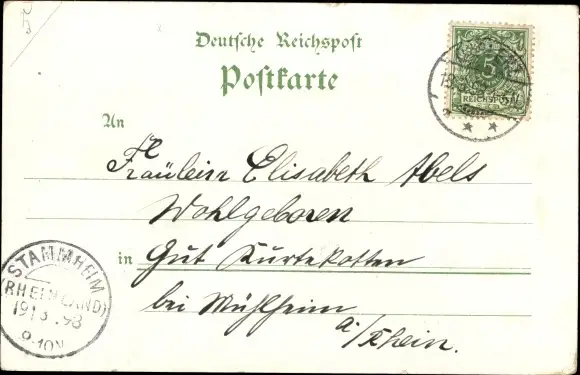 Deutsche Reichspost
Postkarte
5
REICHSPOST
An
Fräulein Elisabeth Abels
Wohlgeboren
in Gut Kurtekotten
bei Mühlheim
a/Rhein.
STAMMHEIM
(RHEINLAND)
19 1 3 . 98
9-10V